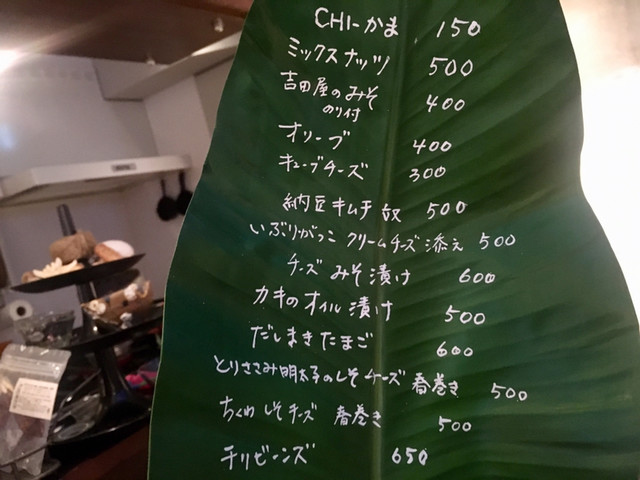 CHI-かま 150
ミックスナッツ 500
吉田屋のみそ
のり付 400
オリーブ 400
キューブチーズ 300
納豆キムチ奴 500
いぶりがっこ クリームチーズ添え 500
チーズ みそ漬け 600
カキのオイル漬け 500
だしまきたまご 600
とりささみ明太子のしそチーズ 春巻き 500
ちくわしそチーズ 春巻き 500
チリビーンズ 650